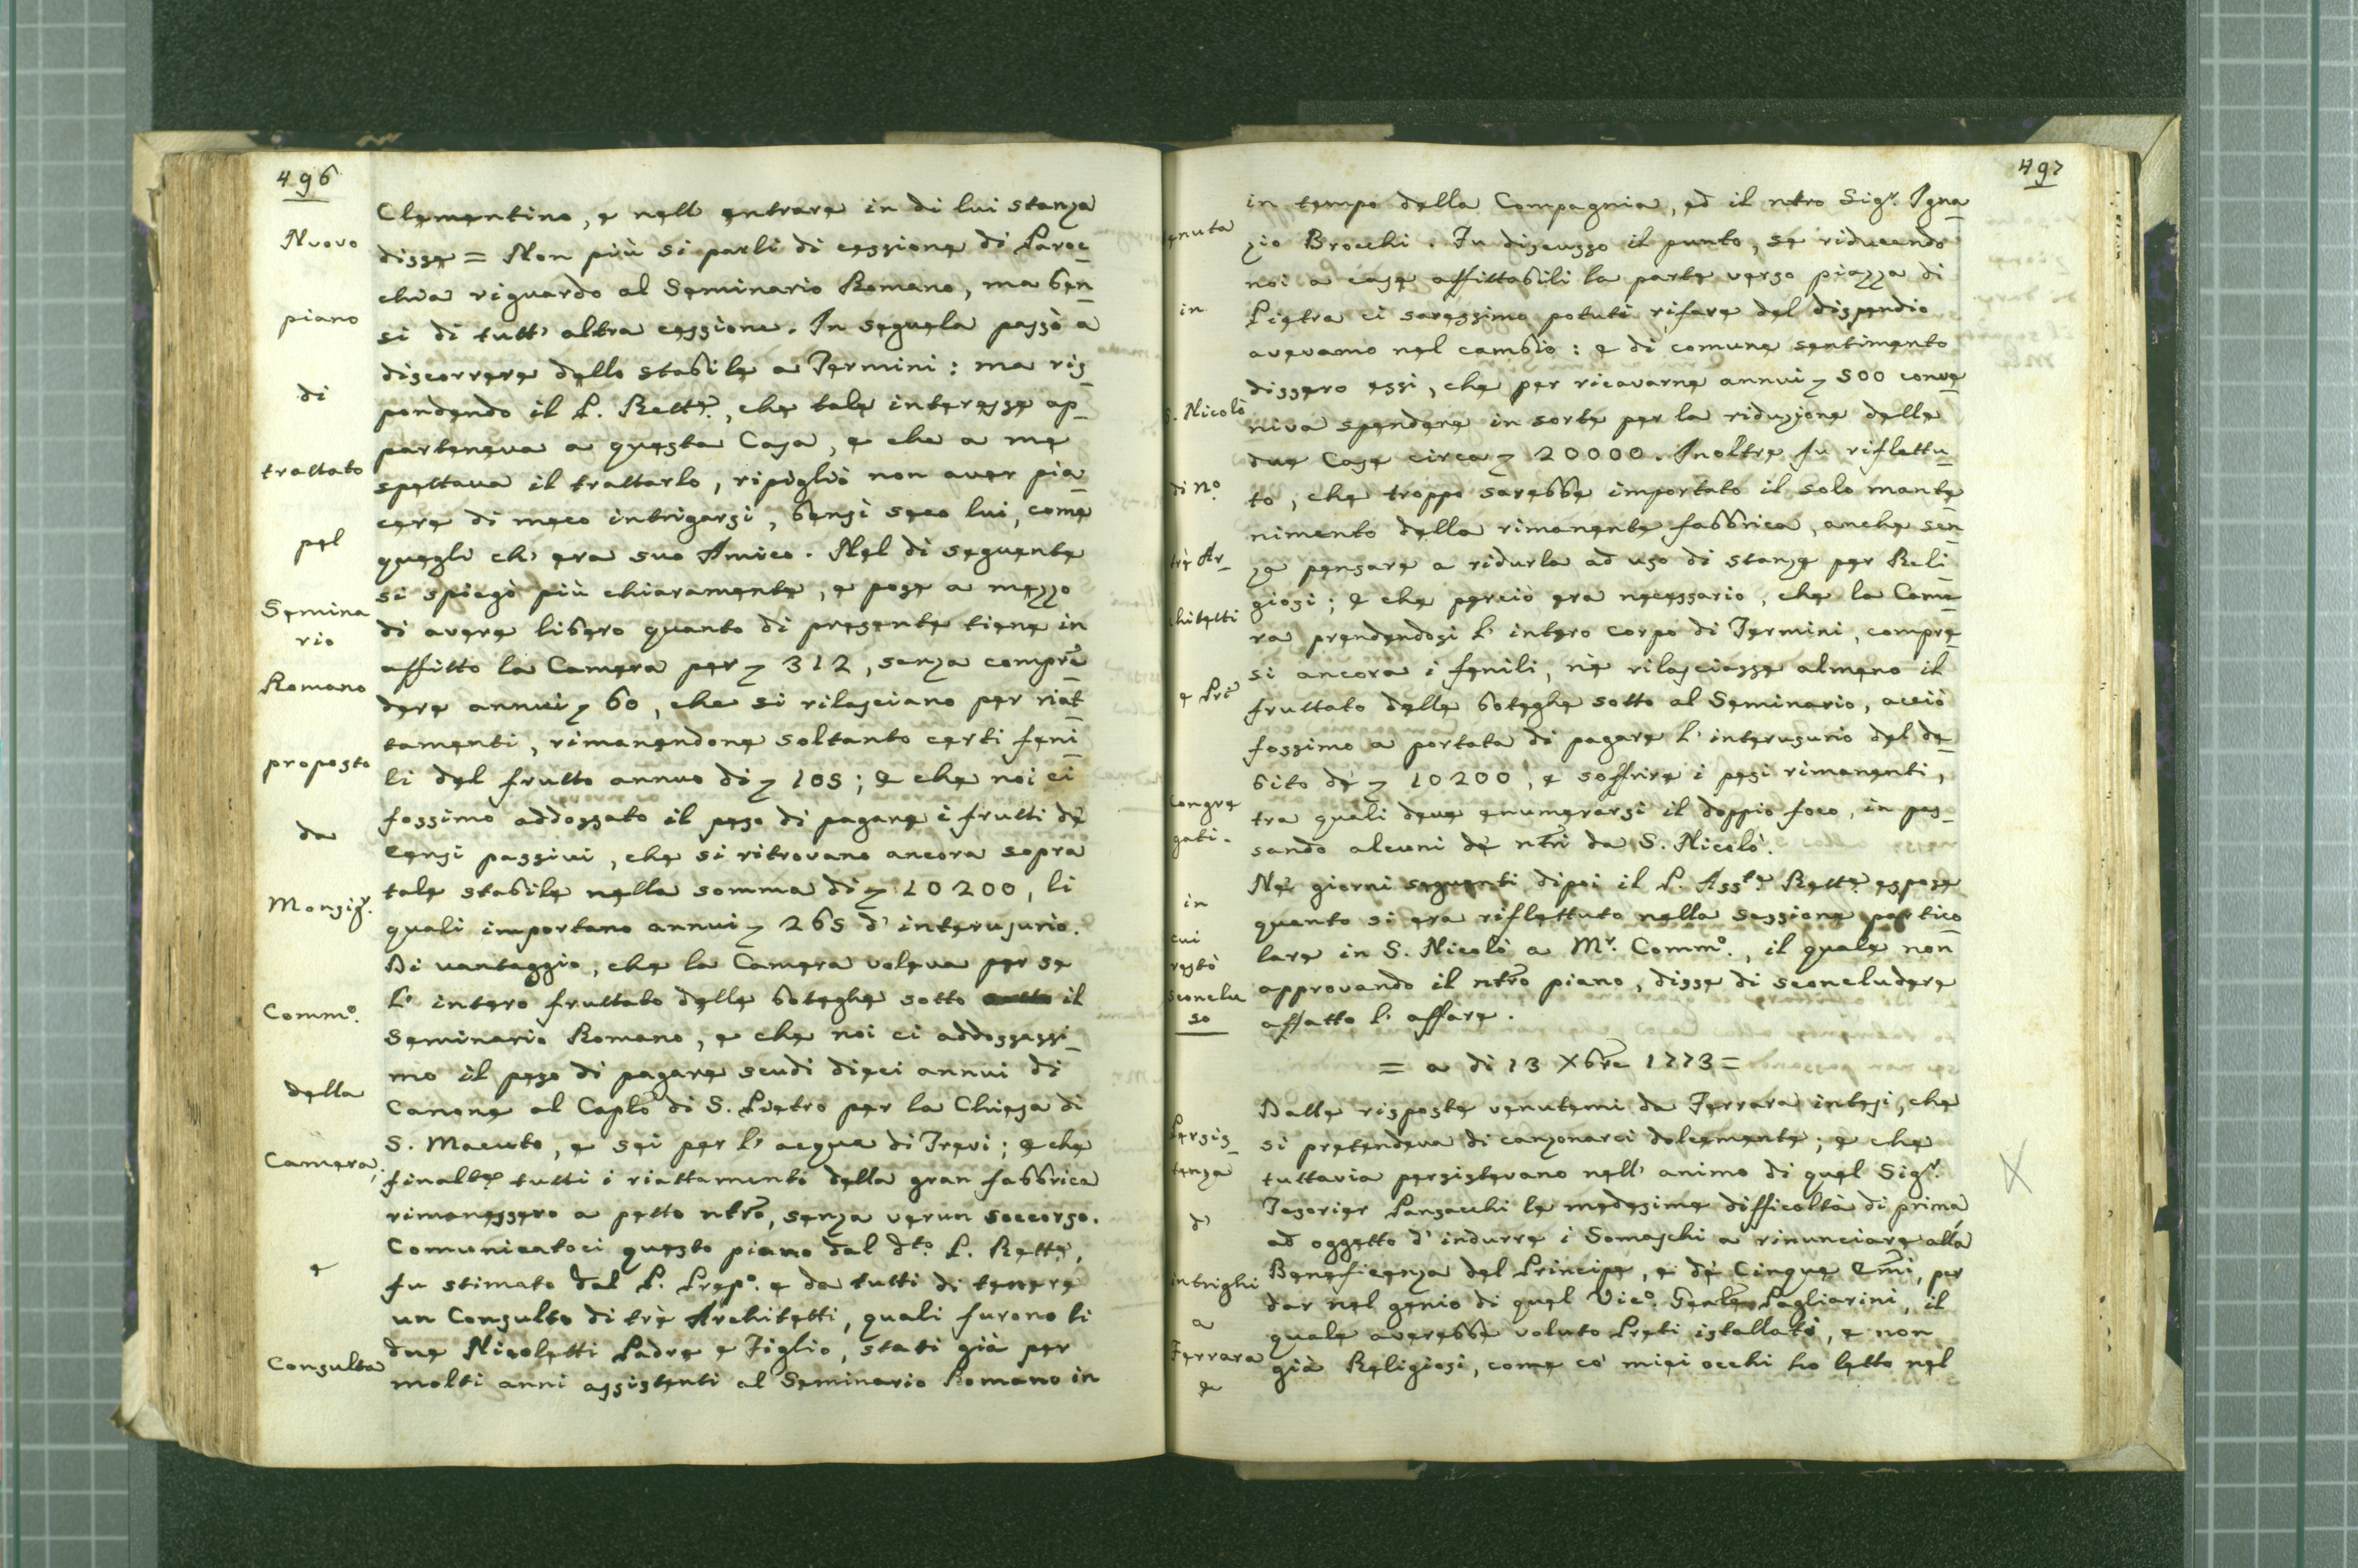 496
Nuovo
piano
di
trattato
pel
Semina
rio
Romano
proposto
da
Monsigr.
Commo.
della
Camera,
e
Consulta
Clementino, e nell entrare in di lui stanza
disse = Non più si parli di cessione di Paroc_
chia riguardo al Seminario Romano, ma ben_
si di tutt' altra cessione. In seguela passò a
discorrere dello stabile a Termini: ma ris_
pondendo il P. Rette., che tale interesse ap_
parteneva a questa Casa, e che a me
spettava il trattarlo, ripigliò non aver pia_
cere di meco intrigarsi, bensi seco lui, come
quegli ch' era suo Amico. Nel di seguente
si spiegò più chiaramente, e pose a mezzo
di avere libero quanto di presente tiene in
affitto la Camera per 312, senza compre_
dere annui 60, che si rilasciano per riat_
tamenti, rimanendone soltanto certi feni_
li del frutto annuo di 105; e che noi ci
fossimo addossato il peso di pagare i frutti de
Censi passivi, che si ritrovano ancora sopra
tale stabile nella somma di 10200, li
quali importano annui 265 d' interusurio.
Di vantaggio, che la Camera voleva per se
l' intero fruttato delle boteghe sotto il
Seminario Romano, e che noi ci addossassi_
mo il peso di pagare scudi dieci annui di
Canone al Caplo di S. Pietro per la Chiesa di
S. Macuto, e sei per l' acqua di Trevi; e che
finalte. tutti i riattamenti della gran fabbrica
rimanessero a petto ntro, senza verun soccorso.
Comunicatoci questo piano dal dto. P. Rette.,
fu stimato dal P. Prepo. e da tutti di tenere
un Consulto di trè Architetti, quali furono li
due Nicoletti Padre e Figlio, stati già per
molti anni assistenti al Seminario Romano in
497
tenuta
in
S. Nicolò
di no.
trè Ar_
chitetti
e Pri
Congre
gati.
in
cui
restò
sconclu
so
Persis_
tenza
d'
intrighi
a
Ferrara
e
in tempo della Compagnia, ed il ntro Sigr. Igna_
zio Brocchi. Fu discusso il punto, se riducendo
noi a case affittabili la parte verso piazza di
Pietra ci saressimo potuti rifare del dispendio
avevamo nel cambio: e di comune sentimento
dissero essi, che per ricavarne annui 500 conve_
niva spendere in sorte per la riduzione delle
due Case circa 20000. Inoltre fu riflettu_
to, che troppo sarebbe importato il solo mante_
nimento della rimanente fabbrica, anche sen_
za pensare a ridurla ad uso di stanze per Reli_
giosi; e che perciò era necessario, che la Came_
ra prendendosi l' intero corpo di Termini, compre_
si ancora i fenili, nè rilasciasse almeno il
fruttato delle boteghe sotto al Seminario, acciò
fossimo a portata di pagare l' interusurio del de_
bito de 10200, e soffrire i pesi rimanenti,
tra quali deve enumerarsi il doppio foco, in pas_
sando alcuni de ntri da S. Nicolò.
Ne giorni seguenti dipoi il P. Asste. Rette. espose
quanto si era riflettuto nella sessione partico_
lare in S. Nicolò a Mr. Commo., il quale non
approvando il ntro piano, disse di sconcludere
affatto l' affare.
= a di 13 Xbre 1773 =
Dalle risposte venutemi da Ferrara intesi, che
si pretendeva di canzonarci dolcemente; e che
tuttavia persistevano nell' animo di quel Sigr.
Tesorier Pansacchi le medesime difficoltà di prima
ad oggetto d' indurre i Somaschi a rinunciare alla
Beneficenza del Principe, e de Cinque Emi, per
dar nel genio di quel Vico. Genle Pagliarini, il
quale averebbe voluto Preti istallati, e non
già Religiosi, come co' miei occhi ho letto nel